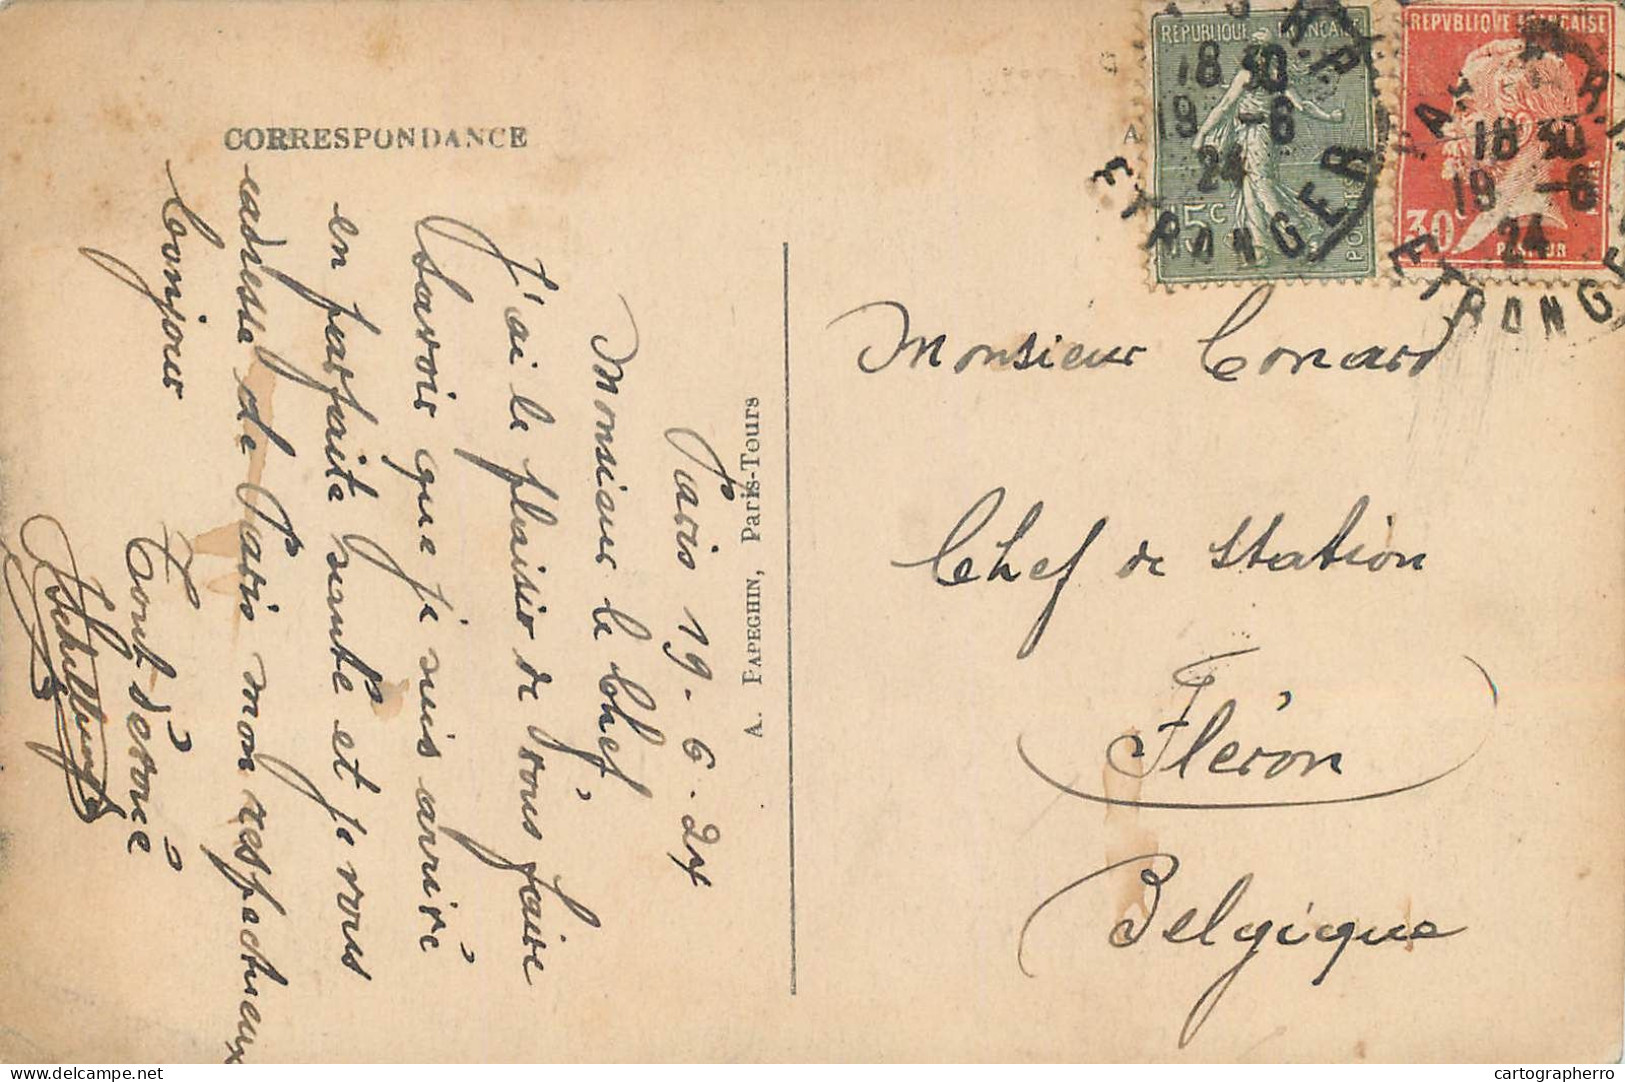 CORRESPONDANCE
Paris 19-6-24
Monsieur le Chef,
J'ai le plaisir de vous faire
savoir que je suis arrivé
en parfaite santé et je vous
adresse de Paris mon respectueux
bonjour
Tout dévoué
A. PAPEGHIN, Paris-Tours
REPUBLIQUE FRANCAISE
15c
POSTES
18 30
19 -6
24
ETRANGER
REPVBLIQVE FRANCAISE
30c
PASTEUR
18 30
19 -6
24
ETRANGE
Monsieur Conard
Chef de Station
Fléron
Belgique
cartographerro